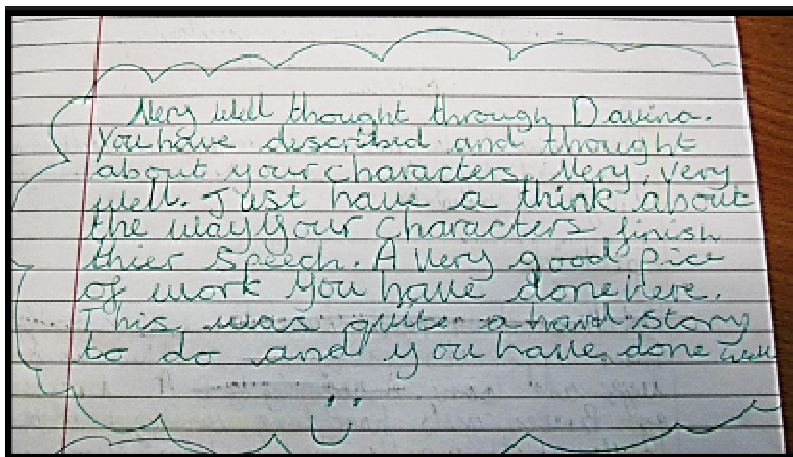 Very well thought through Davina.
You have described and thought
about your characters. Very, very
well. Just have a think about
the way your characters finish
thier speech. A very good pice
of work you have done here.
This was quite a hard story
to do and you have done well